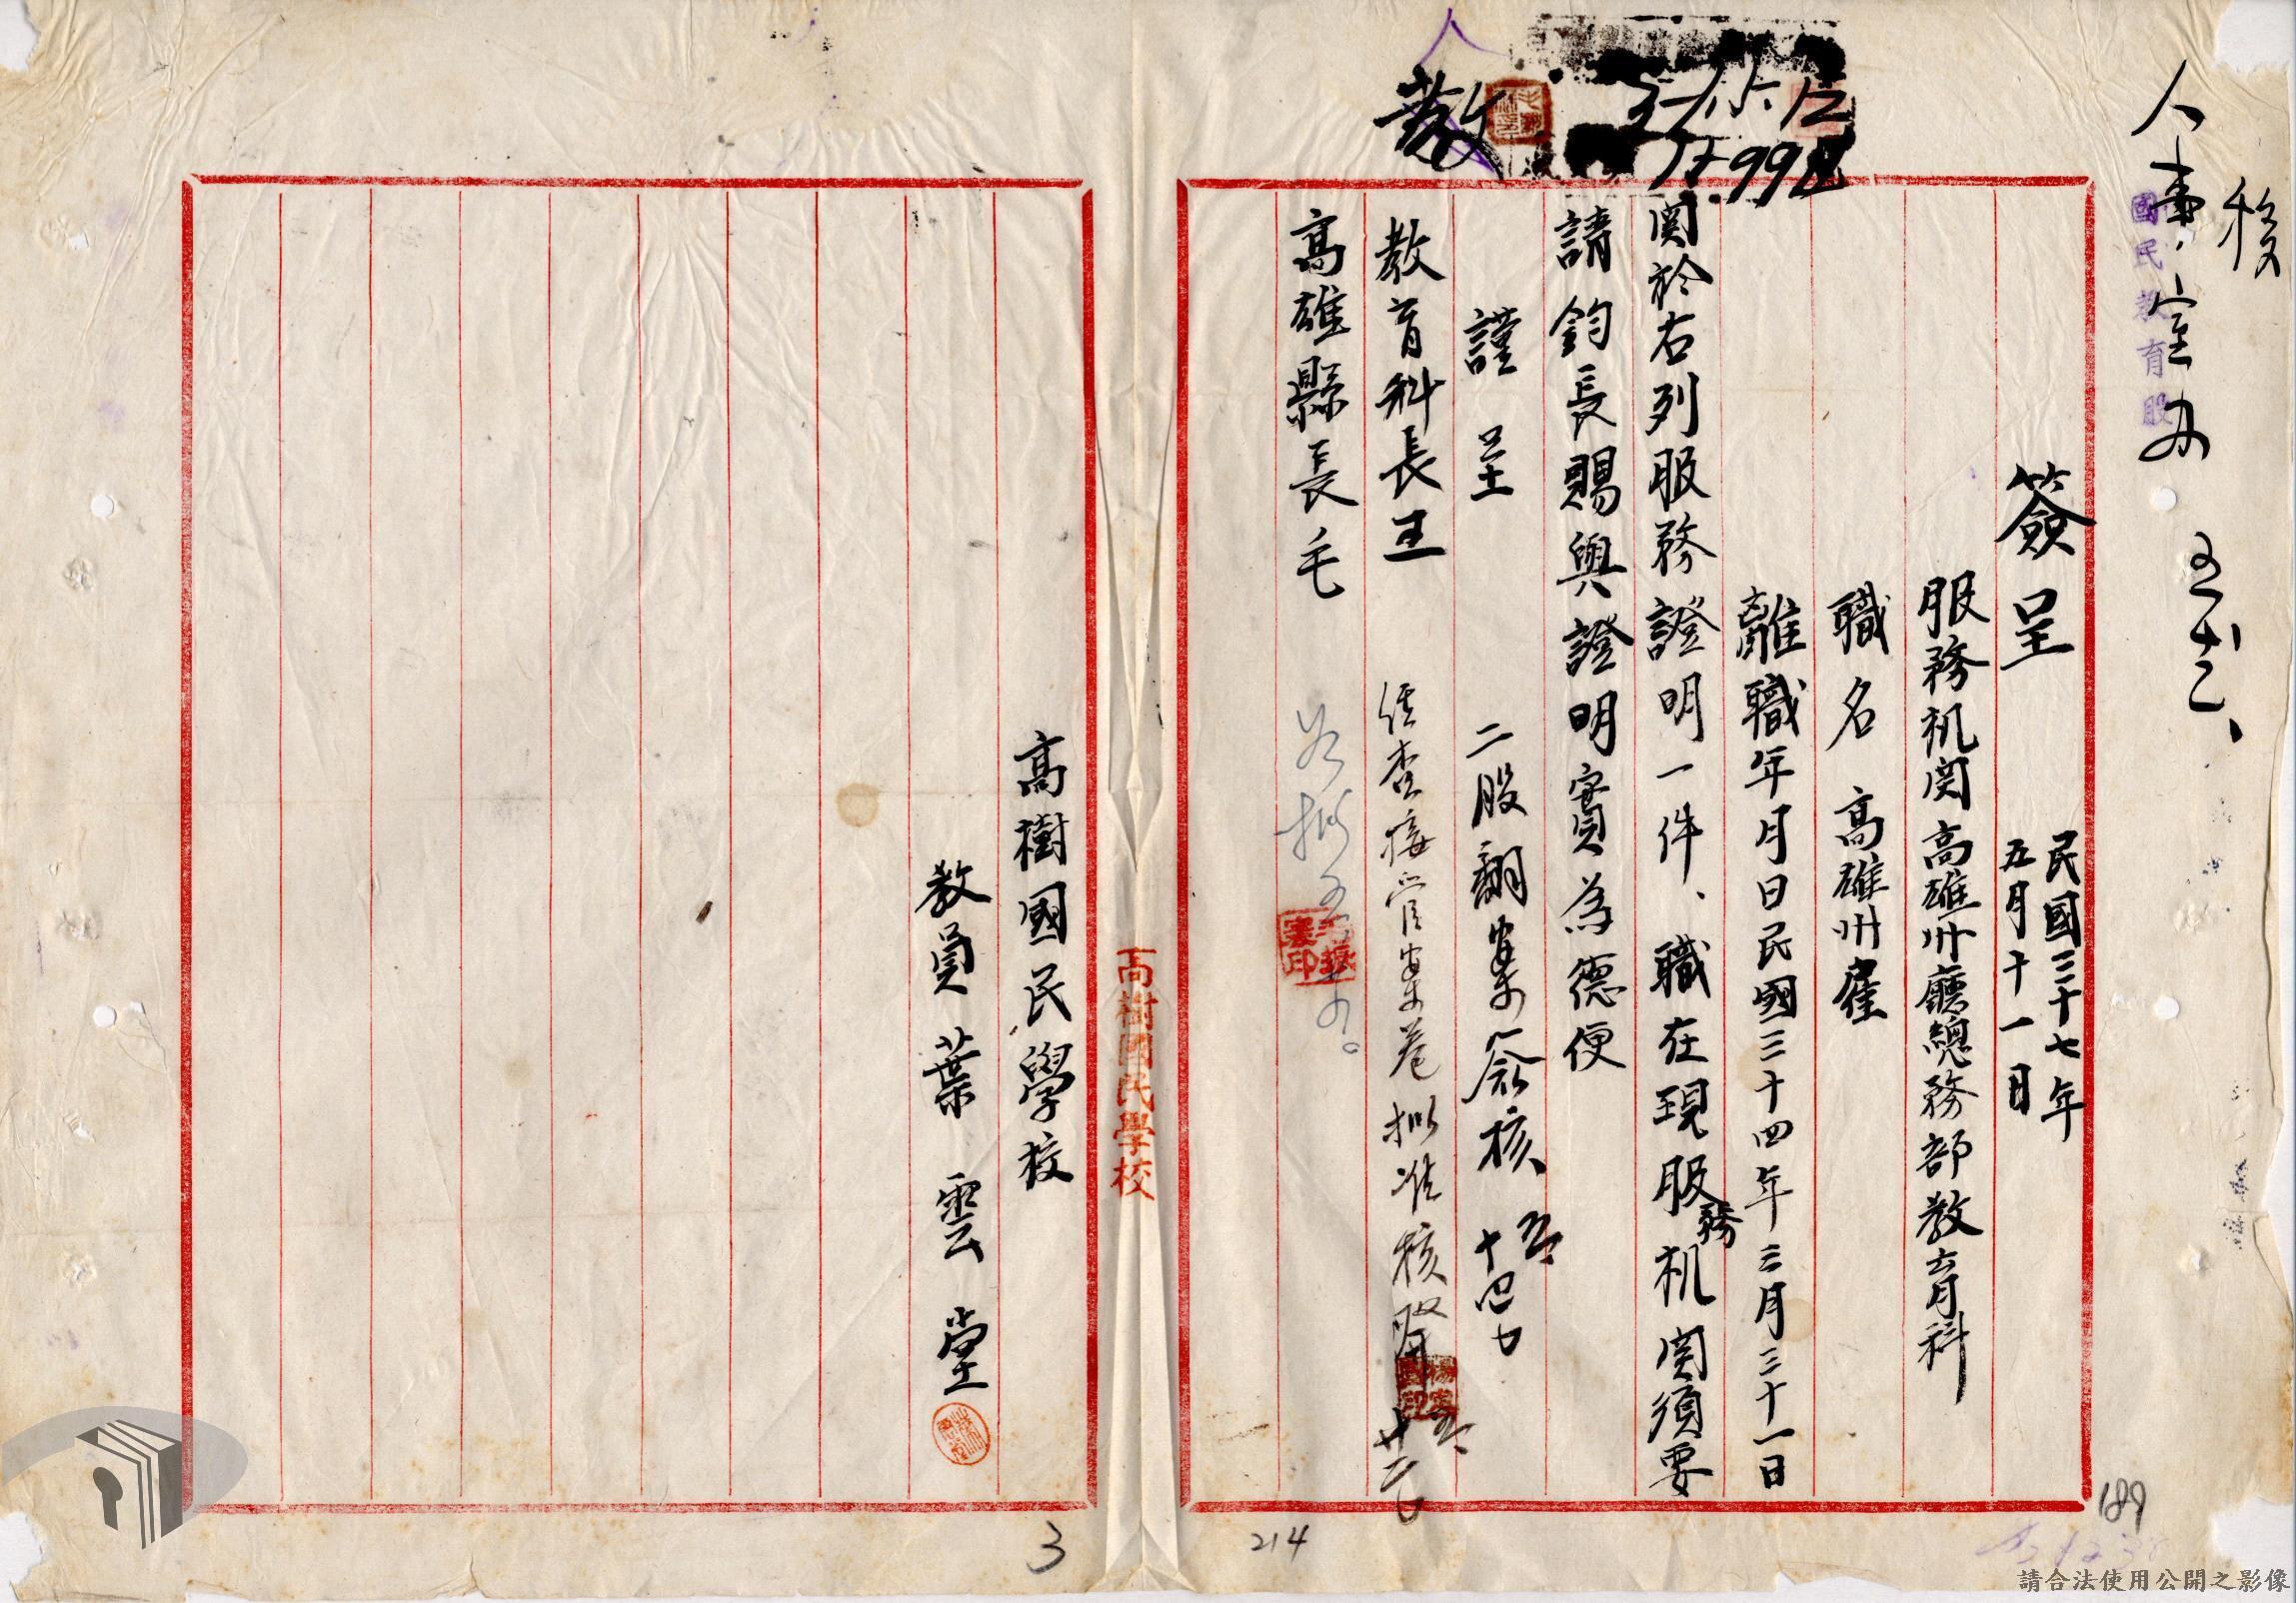 移
人事室办
國民教育股
簽呈
民國三十七年
五月十一日
服務机関高雄州廳總務部教育科
職名 高雄州雇
離職年月日民國三十四年三月三十一日
関於右列服務證明一件、職在現服務机関須要
請鈞長賜與證明實為德便
謹呈
二股翻案簽核
教育科長王
經查接管案卷擬准核發
高雄縣長毛
教
高樹國民學校
高樹國民學校
教員葉雲堂
3
214
189
請合法使用公開之影像